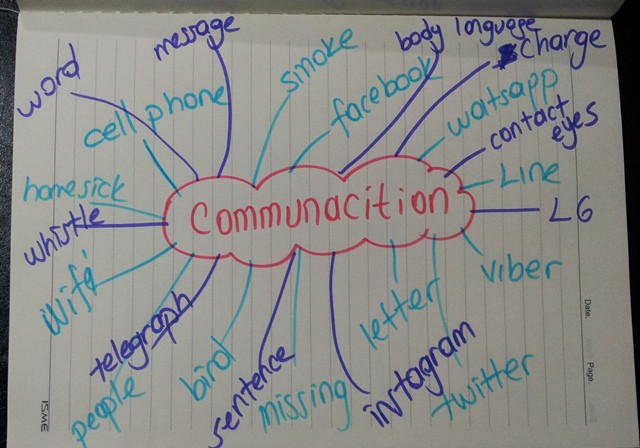 message
body language
word
smoke
Charge
cell phone
facebook
watsapp
contact
eyes
homesick
Line
Communacition
LG
whistle
viber
wifi
telegraph
letter
bird
sentence
missing
instagram
twitter
people
Date.
Page.
ISME